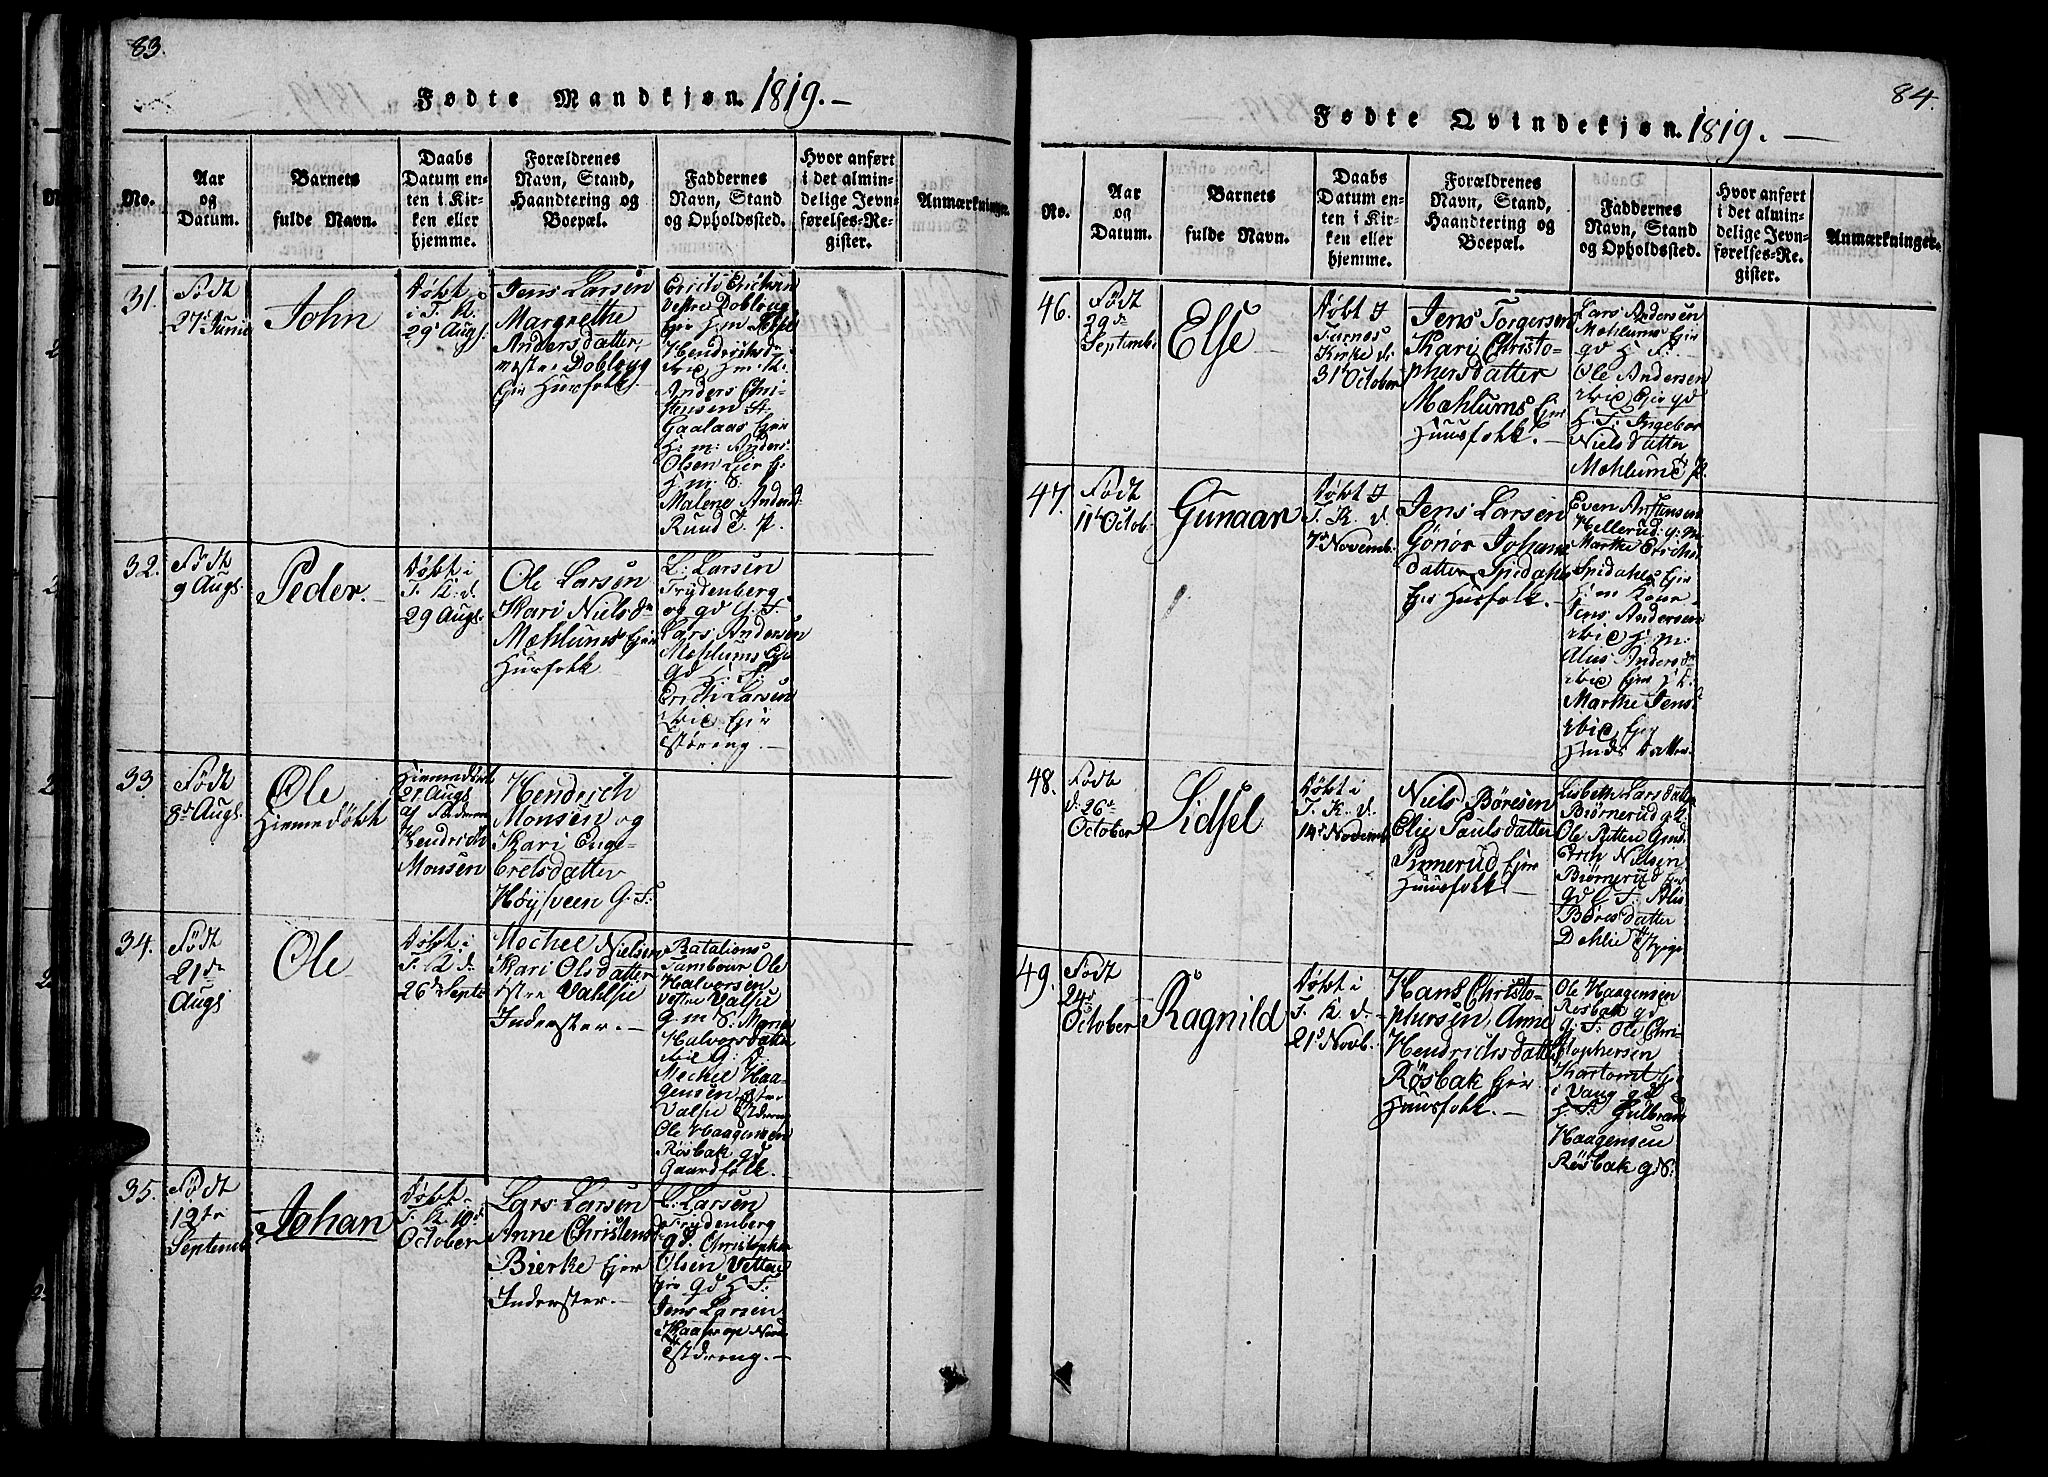 83.
Fødte Mandkjøn. 1819.
No.
Aar
og
Datum.
Barnets
fulde Navn.
Daabs
Datum en-
ten i Kir-
ken eller
hjemme.
Forældrenes
Navn, Stand,
Haandtering og
Boepæl.
Faddernes
Navn, Stand
og Opholdssted.
Hvor anført
i det almin-
delige Jevn-
førelses-Re-
gister.
Anmærkninger.
31.
Født
27 Junie
John
Døbt
i F. K.
29 Augs.
Jens Larsen
Margrethe
Andersdatter
Dobloug
Ejer Husfolk
Erichsen
Vestre Dobloug
Hendrichsdr
Anders Chri-
stensen
Gaalaas Ejer
H: m: Anders
Olsen Ejer
H: m: S:
Malene Andersd
Ruud
32.
Født
9 Augs.
Peder.
Døbt i
F. K: d.
29 Augs.
Ole Larsen
Kari Nielsdr
Mæhlums Ejer
Husfolk
L: Larsen
Frydenberg
og gd G: F:
Lars Andersen
Mæhlums Eje
gd H: F:
Erich Larsen
ibid Ejer
33.
Født
8d Augs.
Ole
Hiemedøbt
Hiemedøbt
21 Augs
af Faderen
Hendrich
Monsen
Hendrich
Monsen og
Kari Enge-
bretsdatter
Höysveen G. F:
34.
Født
21de
Augs
Ole
Døbt i
F. K d.
26de Septb
Mechel Nielsen
Kari Olsdatter
østre Vahlsie
Inderster.
Batalions
Tambour Ole
Halvorsen
Vestre Valsie
G. m S. Marie
Halvorsdatter
ibid G: d:
Mechel Haa-
gensen østre
Valsie
Ole Haagensen
Røsbak gd
Gaardfolk.
35.
Født
12te
Septemb
Johan
Døbt
F. K 10d
October
Lars Larsen
Anne Christensd
Bierke Ejer
Inderster.
L: Larsen
Frydenberg
gd. Christopher
Olsen
Ejer gd H F:
Jens Larsen
84.
Fødte Qvindekjøn. 1819.
No.
Aar
og
Datum.
Barnets
fulde Navn.
Daabs
Datum en-
ten i Kir-
ken eller
hjemme.
Forældrenes
Navn, Stand,
Haandtering og
Boepæl.
Faddernes
Navn, Stand
og Opholdssted.
Hvor anført
i det almin-
delige Jevn-
førelses-Re-
gister.
Anmærkninger.
46.
Født
29de
Septemb
Else
Døbt I
Furnes
Kirke d:
31t October
Jens Torgersen
Kari Christo-
phersdatter
Mæhlums Ejer
Huusfolk.
Lars Andersen
Mæhlums Ejer
gd H F:
Ole Andersen
ibid Ejer gd
H: F: Ingebor
Nielsdatter
Mæhlums P.
47.
Født
11t Octob.
Gunaar
Døbt I
F. K. d.
7d Novemb.
Jens Larsen
Gönör Johans
datter Spidahls
Ejer Husfolk.
Even Anstensen
Hellerud g: m
Marthe Erichs
Spidahls Ejer
H: m Kone
Jens Andersen
ibid H: m:
Alus Andersdr
ibid Ejer H K:
Marthe Jens
ibid Ejer
Hends Datter.
48.
Født
d. 26de
October
Sidsel
Døbt i
F. K. d.
14d Novemb
Niels Böresen
Elie Paulsdatter
Pinnerud Ejer
Huusfolk
Lisbeth Larsdatter
Biørnerud g:
Ole
Erich Nielsen
Biørnerud Ejer
gd
Böresdatter
Dæhlie
49.
Født
24d
October
Ragnild
Døbt i
F. K. d.
21d Novb.
Hans Christo-
phersen, Anne
Hendrichsdatter
Røsbak Ejer
Huusfolk.
Ole Haagensen
Røsbak gd
G: F: Ole Chri-
stophersen
i Vang gd
H F: Gulbrand
Haagensen
Røsbak g S: